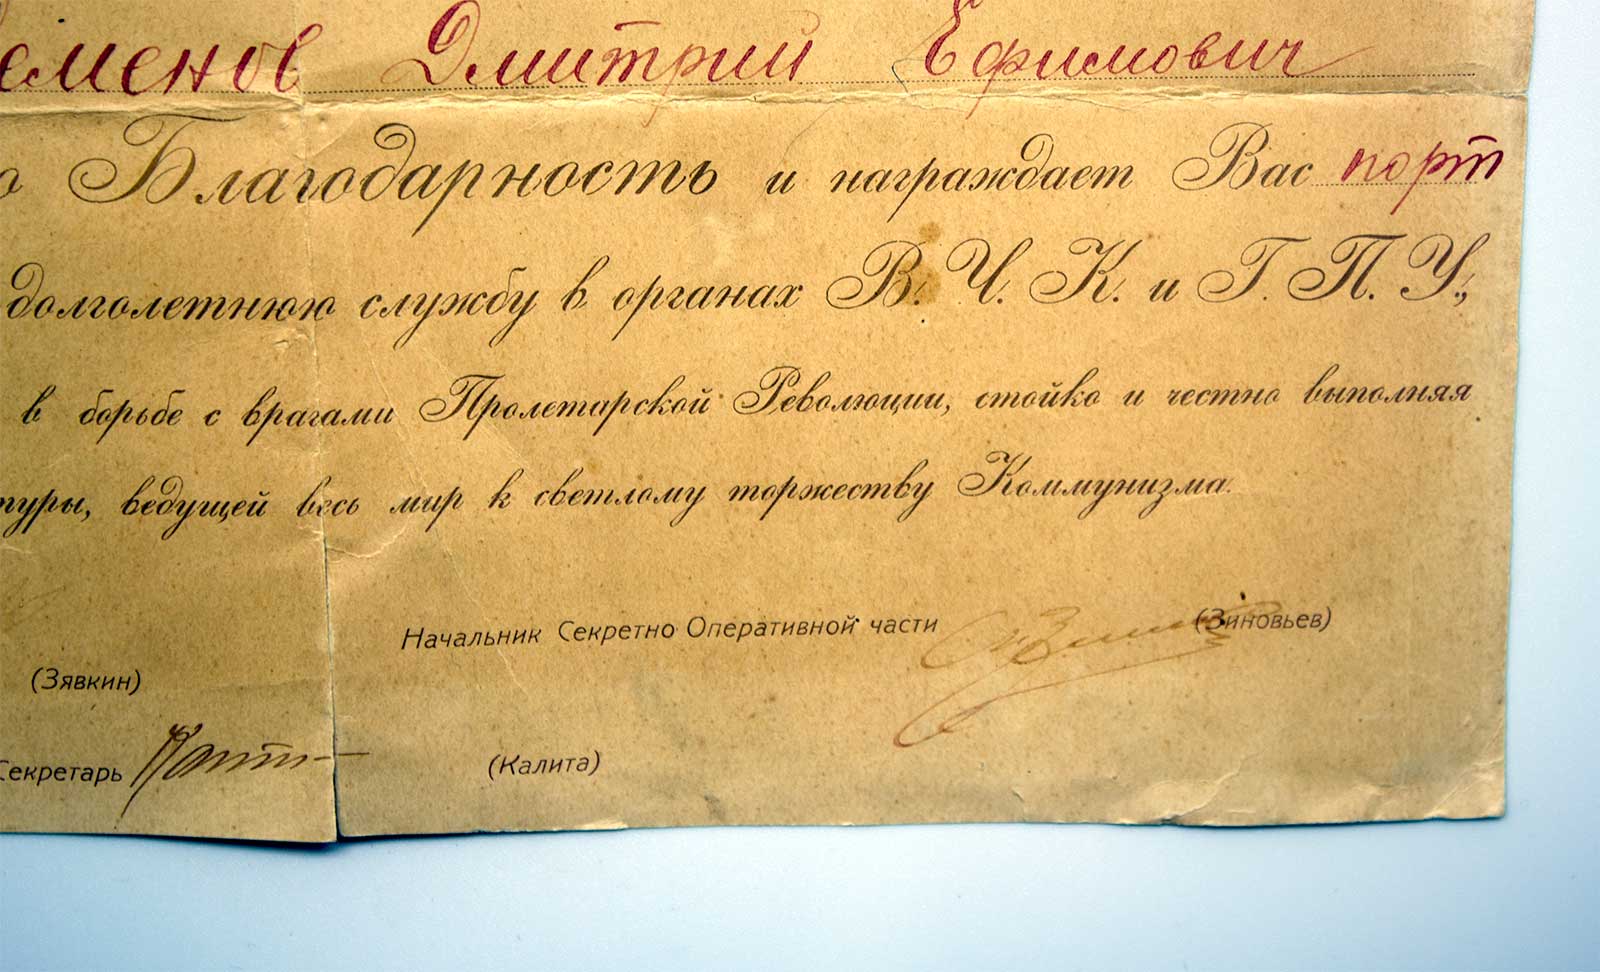 еменов Дмитрий Ефимович
о Благодарность и награждает Вас порт
долголетнюю службу в органах В. Ч. К. и Г. П. У.,
в борьбе с врагами Пролетарской Революции, стойко и честно выполняя
туры, ведущей весь мир к светлому торжеству Коммунизма.
Начальник Секретно Оперативной части (Зиновьев)
(Зявкин)
Секретарь (Калита)